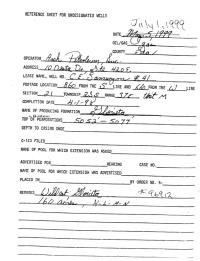 REFERENCE SHEET FOR UNDESIGNATED WELLS
July 1, 1999
DATE May 5, 1999
OIL/GAS Gas
COUNTY
OPERATOR Arch Petroleum, Inc.
ADDRESS 10 Desta Dr., Ste 420E
LEASE NAME, WELL NO. C E Lamunyon # 41
FOOTAGE LOCATION 860 FROM THE S LINE AND 660 FROM THE W LINE
SECTION 21 TOWNSHIP 23S RANGE 37E Unit M
COMPLETION DATE 4-1-98
NAME OF PRODUCING FORMATION Glorieta
TOP OF PERFORATIONS 5052'-5077'
DEPTH TO CASING SHOE
C-123 FILED
NAME OF POOL FOR WHICH EXTENSION WAS ASKED
ADVERTISED FOR HEARING CASE NO.
NAME OF POOL FOR WHICH EXTENSION WAS ADVERTISED
PLACED IN BY ORDER NO. R-
REMARKS Wildcat, Glorieta # 96912
160 acres